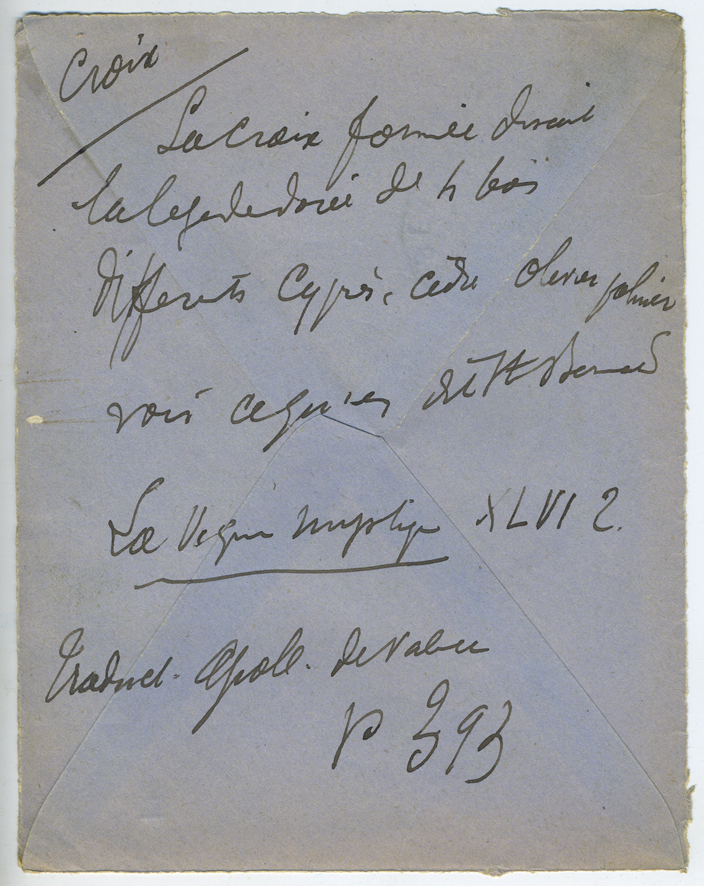 Croix
La Croix formée disait
la legende dorée de 4 bois
differents Cyprès, cèdre olivier palmier
voir ce qu'en dit St Bernard
La Vigne mystique XLVI 2.
Traduct. Apoll. de Valence
p 393